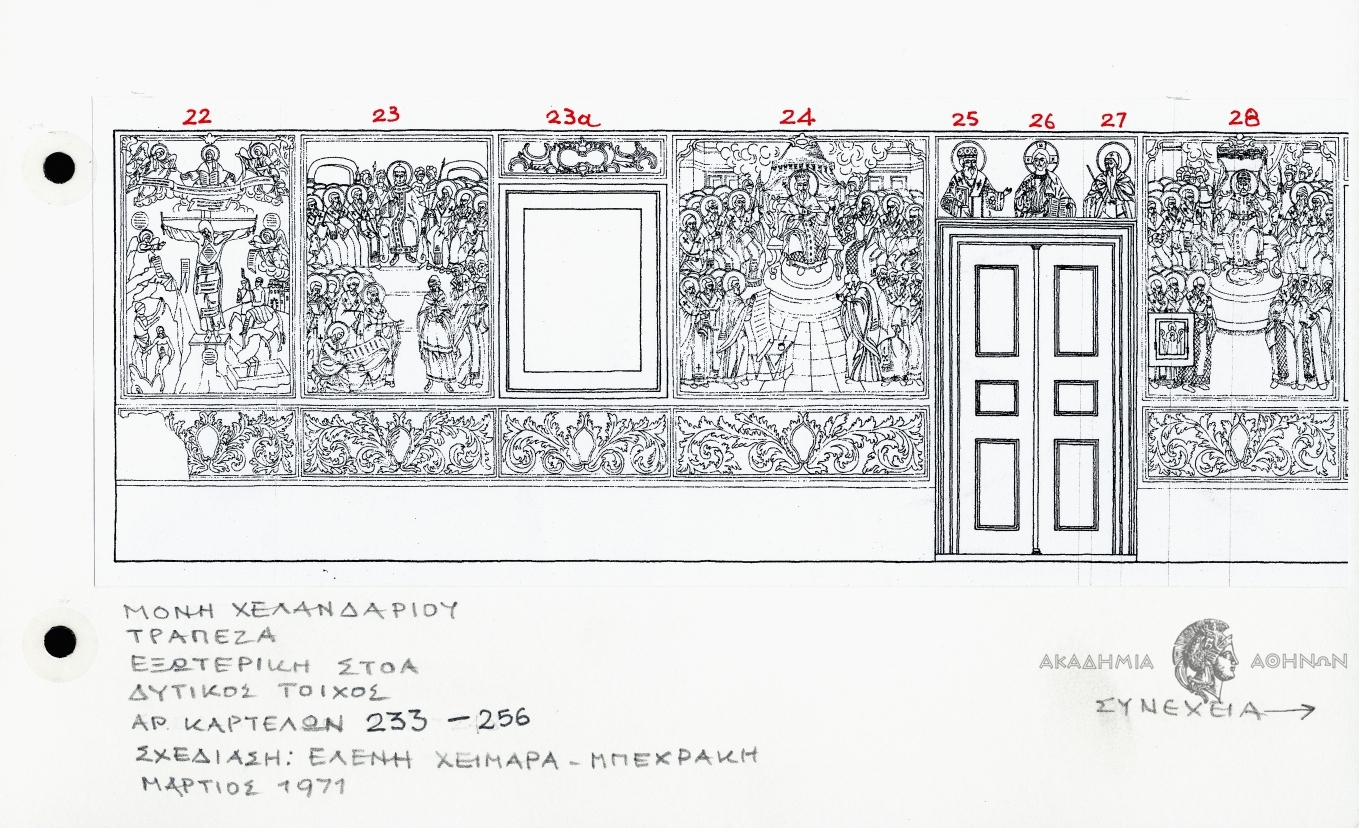 22 23 23a 24 25 26 27 28
ΜΟΝΗ ΧΕΛΑΝΔΑΡΙΟΥ
ΤΡΑΠΕΖΑ
ΕΞΩΤΕΡΙΚΗ ΣΤΟΑ
ΔΥΤΙΚΟΣ ΤΟΙΧΟΣ
ΑΡ. ΚΑΡΤΕΛΩΝ 233 – 256
ΣΧΕΔΙΑΣΗ: ΕΛΕΝΗ ΧΕΙΜΑΡΑ - ΜΠΕΧΡΑΚΗ
ΜΑΡΤΙΟΣ 1971
ΑΚΑΔΗΜΙΑ ΑΘΗΝΩΝ
ΣΥΝΕΧΕΙΑ →